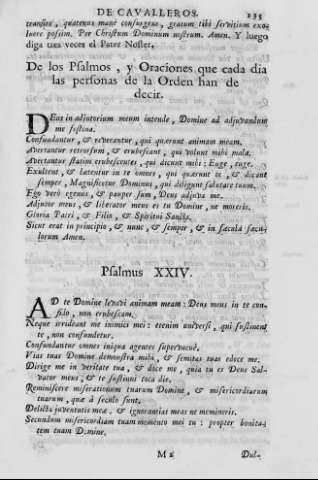 DE CAVALLEROS. 135
transfer, quatenus manè consurgens, gratum tibi servitium exol-
luere possim. Per Christum Dominum nostrum. Amen. Y luego
diga tres veces el Pater Noster.
De los Psalmos, y Oraciones que cada dia
las personas de la Orden han de
decir.
DEus in adiutorium meum intende, Domine ad adjuvandum
me festina.
Confundantur, & revereantur, qui quærunt animam meam.
Avertantur retrorsum, & erubescant, qui volunt mihi mala.
Avertantur statim erubescentes, qui dicunt mihi: Euge, euge.
Exultent, & lætentur in te omnes, qui quærunt te, & dicant
semper, Magnificetur Dominus, qui diligunt salutare tuum.
Ego verò egenus, & pauper sum, Deus adjuva me.
Adjutor meus, & liberator meus es tu Domine, ne moreris.
Gloria Patri, & Filio, & Spiritui Sancto.
Sicut erat in principio, & nunc, & semper, & in sæcula sæcu-
lorum Amen.
Psalmus XXIV.
AD te Domine levavi animam meam: Deus meus in te con-
fido, non erubescam.
Neque irrideant me inimici mei: etenim universi, qui sustinent
te, non confundetur.
Confundantur omnes iniqua agentes supervacuè.
Vias tuas Domine demonstra mihi, & semitas tuas edoce me.
Dirige me in veritate tua, & doce me, quia tu es Deus Sal-
vator meus, & te sustinui tota die.
Reminiscere miserationum tuarum Domine, & misericordiarum
tuarum, quæ à sæculo sunt.
Delicta juventutis meæ, & ignorantias meas ne memineris.
Secundum misericordiam tuam memento mei tu: propter bonita-
tem tuam Domine.
M 2 Dul-